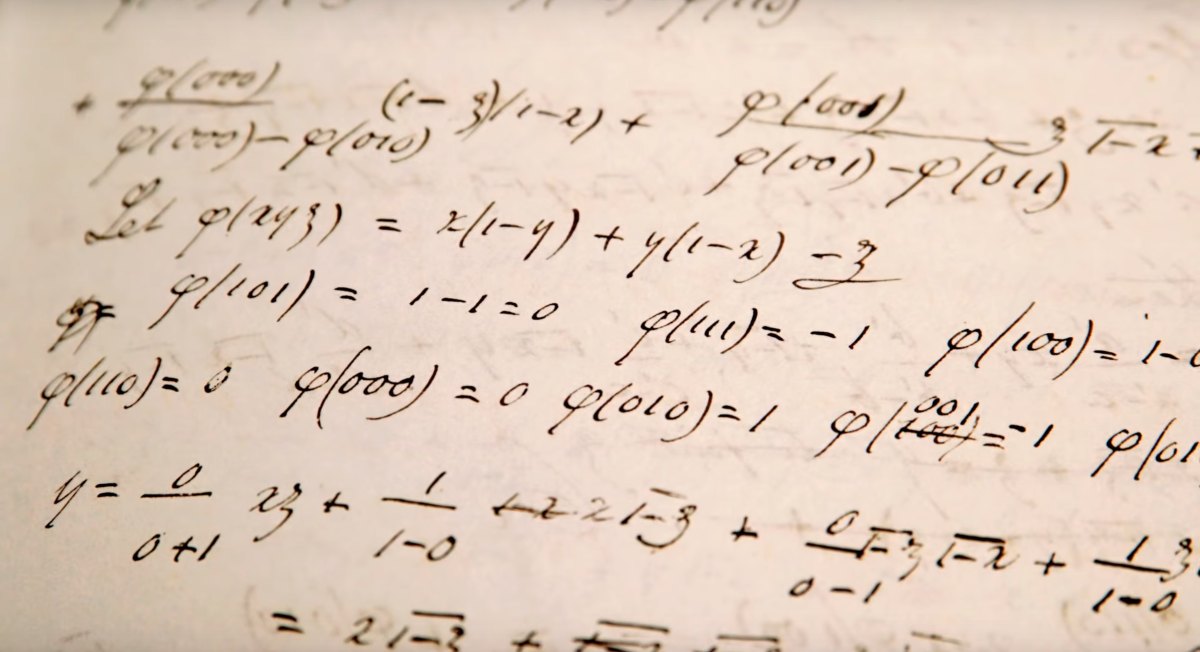 + φ(000) / φ(000)–φ(010) (1–z)(1–x) + φ(001) / φ(001)–φ(011) z 1–x +
Let φ(xyz) = x(1–y) + y(1–x) –z
φ(101) = 1–1=0 φ(111)= –1 φ(100)= 1–0
φ(110)= 0 φ(000) = 0 φ(010)=1 φ(001)=–1 φ(01
y= 0 / 0+1 xz + 1 / 1–0 x 1–z + 0 / 0–1 1–z 1–x + 1 / 1–0 z
= x 1–z +